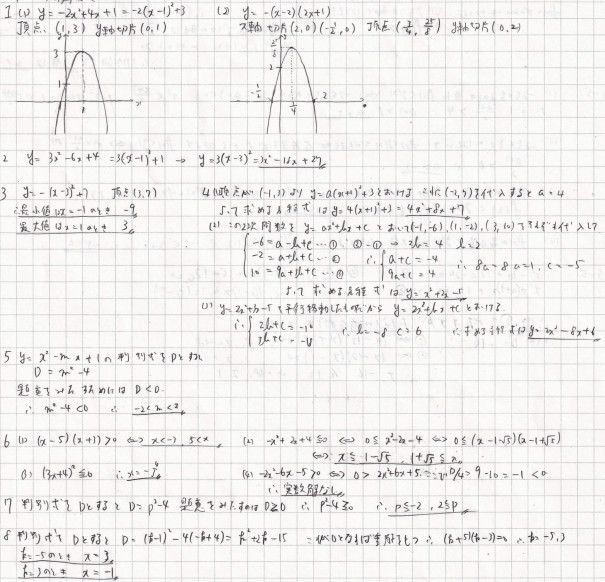 1 (1) y = -2x²+4x+1 = -2(x-1)²+3
頂点 (1,3) y軸切片 (0,1)
3
1
1
(2) y = -(x-2)(2x+1)
x軸切片 (2,0) (-1/2,0) 頂点 (3/4, 25/8) y軸切片 (0,2)
25/8
2
-1/2
2
2 y = 3x²-6x+4 = 3(x-1)²+1 → y=3(x-3)²=3x²-18x+27
3 y = -(x-3)²+7 頂点 (3,7)
最小値は x=-1 のとき -9
最大値は x=1 のとき 3
4 (1) 頂点が (-1,3) より y=a(x+1)²+3 とおける これに (-2,7) を代入すると a=4
よって求める方程式は y=4(x+1)²+3 = 4x²+8x+7
(2) この2次関数を y=ax²+bx+c とおいて (-1,-6), (1,-2), (3,10) をそれぞれ代入して
-6=a-b+c …① ②-① → 2b=4 b=2
-2=a+b+c …②
10=9a+3b+c …③
∴ a+c=-4
9a+c=4
∴ 8a=8 a=1, c=-5
よって求める方程式は y=x²+2x-5
y=2x²+bx+c とおける
∴ b=-8 c=6 ∴ 求める方程式は y=2x²-8x+6
5 y=x²-mx+1 の判別式を D とすると
D = m²-4
題意をみたすためには D<0
∴ m²-4<0 ∴ -2<m<2
6 (1) (x-5)(x+7)>0 ⇔ x<-7, 5<x
(2) -x²+2x+4≦0 ⇔ 0≦x²-2x-4 ⇔ 0≦(x-1-√5)(x-1+√5)
⇔ x≦1-√5, 1+√5≦x
(3) (3x+4)²≦0
(4) -2x²-6x-5>0 ⇔ 0>2x²+6x+5 D/4=9-10=-1<0
∴ 実数解なし
7 判別式を D とすると D=p²-4 題意をみたすのは D≧0 ∴ p²-4≧0 ∴ p≦-2, 2≦p
8 判別式を D とすると D=(k-1)²-4(-k+4)=k²+2k-15 ∴ (k+5)(k-3)=0 ∴ k=-5,3
k=-5 のとき x=3
k=3 のとき x=-1